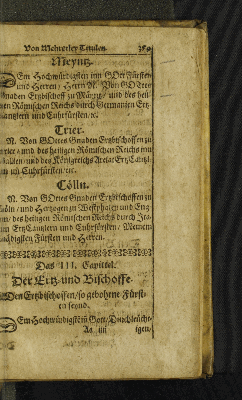 Von Mehrerley Titulen.
Meyntz.
Em Hochwürdigsten inn GOtt Fürsten
und Herren / Herrn N. Von GOttes
Gnaden Ertzbischoff zu Mäyntz / und des hei-
Römischen Reichs durch Germanien Ertz-
Cantzlern und Cuhrfürsten / ec.
Trier.
N. Von GOttes Gnaden Ertzbischoffen zu
Trier / und des heiligen Römischen Reichs
und des Königreichs Arelat Ertz Cantzl.
Cuhrfürsten / ec.
Cölln.
N. Von GOttes Gnaden Ertzbischoffen zu
Cölln / und Hertzogen zu Westphalen und Eng-
des heiligen Römischen Reichs durch Ita-
Ertz Cantzlern und Cuhrfürsten / Meinem
gnädigsten Fürsten und Herren.
Das III. Capittel.
Der Ertz- und Bischoffe.
Den Ertzbischoffen / so gebohrne Fürst-
en seynd.
Em Hochwürdigsten in Gott / Durchleuchti-
Aa iiii igen /